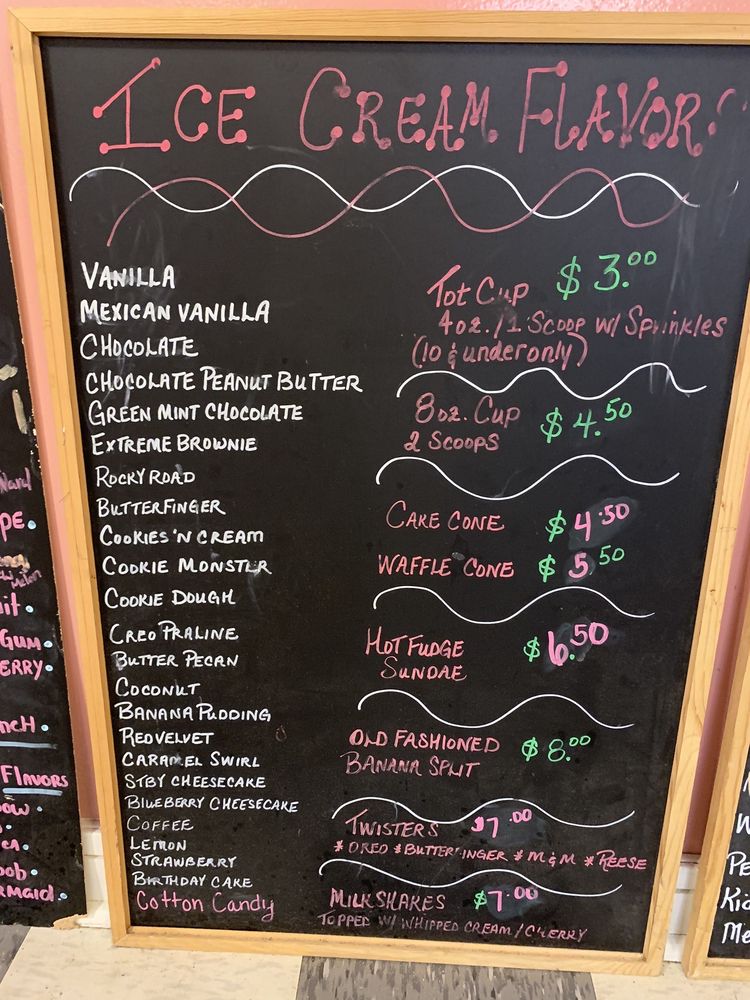 ICE CREAM FLAVORS
VANILLA
MEXICAN VANILLA
CHOCOLATE
CHOCOLATE PEANUT BUTTER
GREEN MINT CHOCOLATE
EXTREME BROWNIE
ROCKY ROAD
BUTTERFINGER
COOKIES 'N CREAM
COOKIE MONSTER
COOKIE DOUGH
CREO PRALINE
BUTTER PECAN
COCONUT
BANANA PUDDING
RED VELVET
CARAMEL SWIRL
STBY CHEESECAKE
BLUEBERRY CHEESECAKE
COFFEE
LEMON
STRAWBERRY
BIRTHDAY CAKE
Cotton Candy
Tot Cup $3.00
4oz./1 Scoop w/ Sprinkles
(10 & under only)
8oz. Cup $4.50
2 Scoops
CAKE CONE $4.50
WAFFLE CONE $5.50
HOT FUDGE $6.50
SUNDAE
OLD FASHIONED $8.00
BANANA SPLIT
TWISTERS $7.00
* OREO * BUTTERFINGER * M&M * REESE
MILKSHAKES $7.00
TOPPED W/ WHIPPED CREAM / CHERRY
GUM
FLAVORS